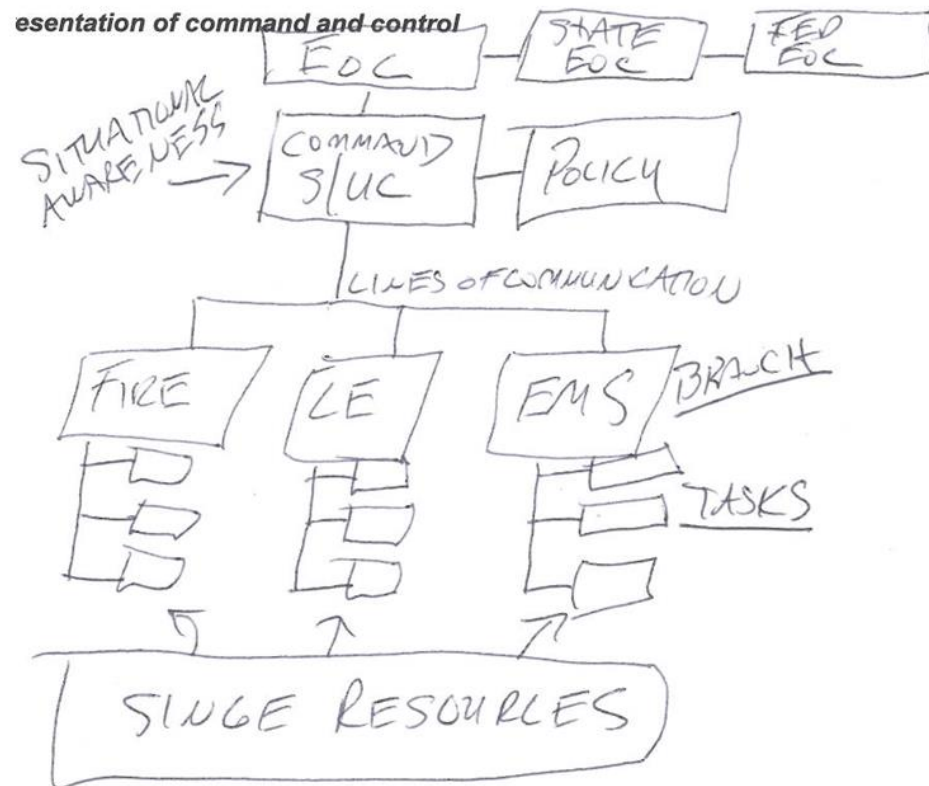 esentation of command and control
EOC
STATE
EOC
FED
EOC
SITUATIONAL
AWARENESS
COMMAND
S/UC
POLICY
LINES OF COMMUNICATION
FIRE
LE
EMS
BRANCH
TASKS
SINGE RESOURCES